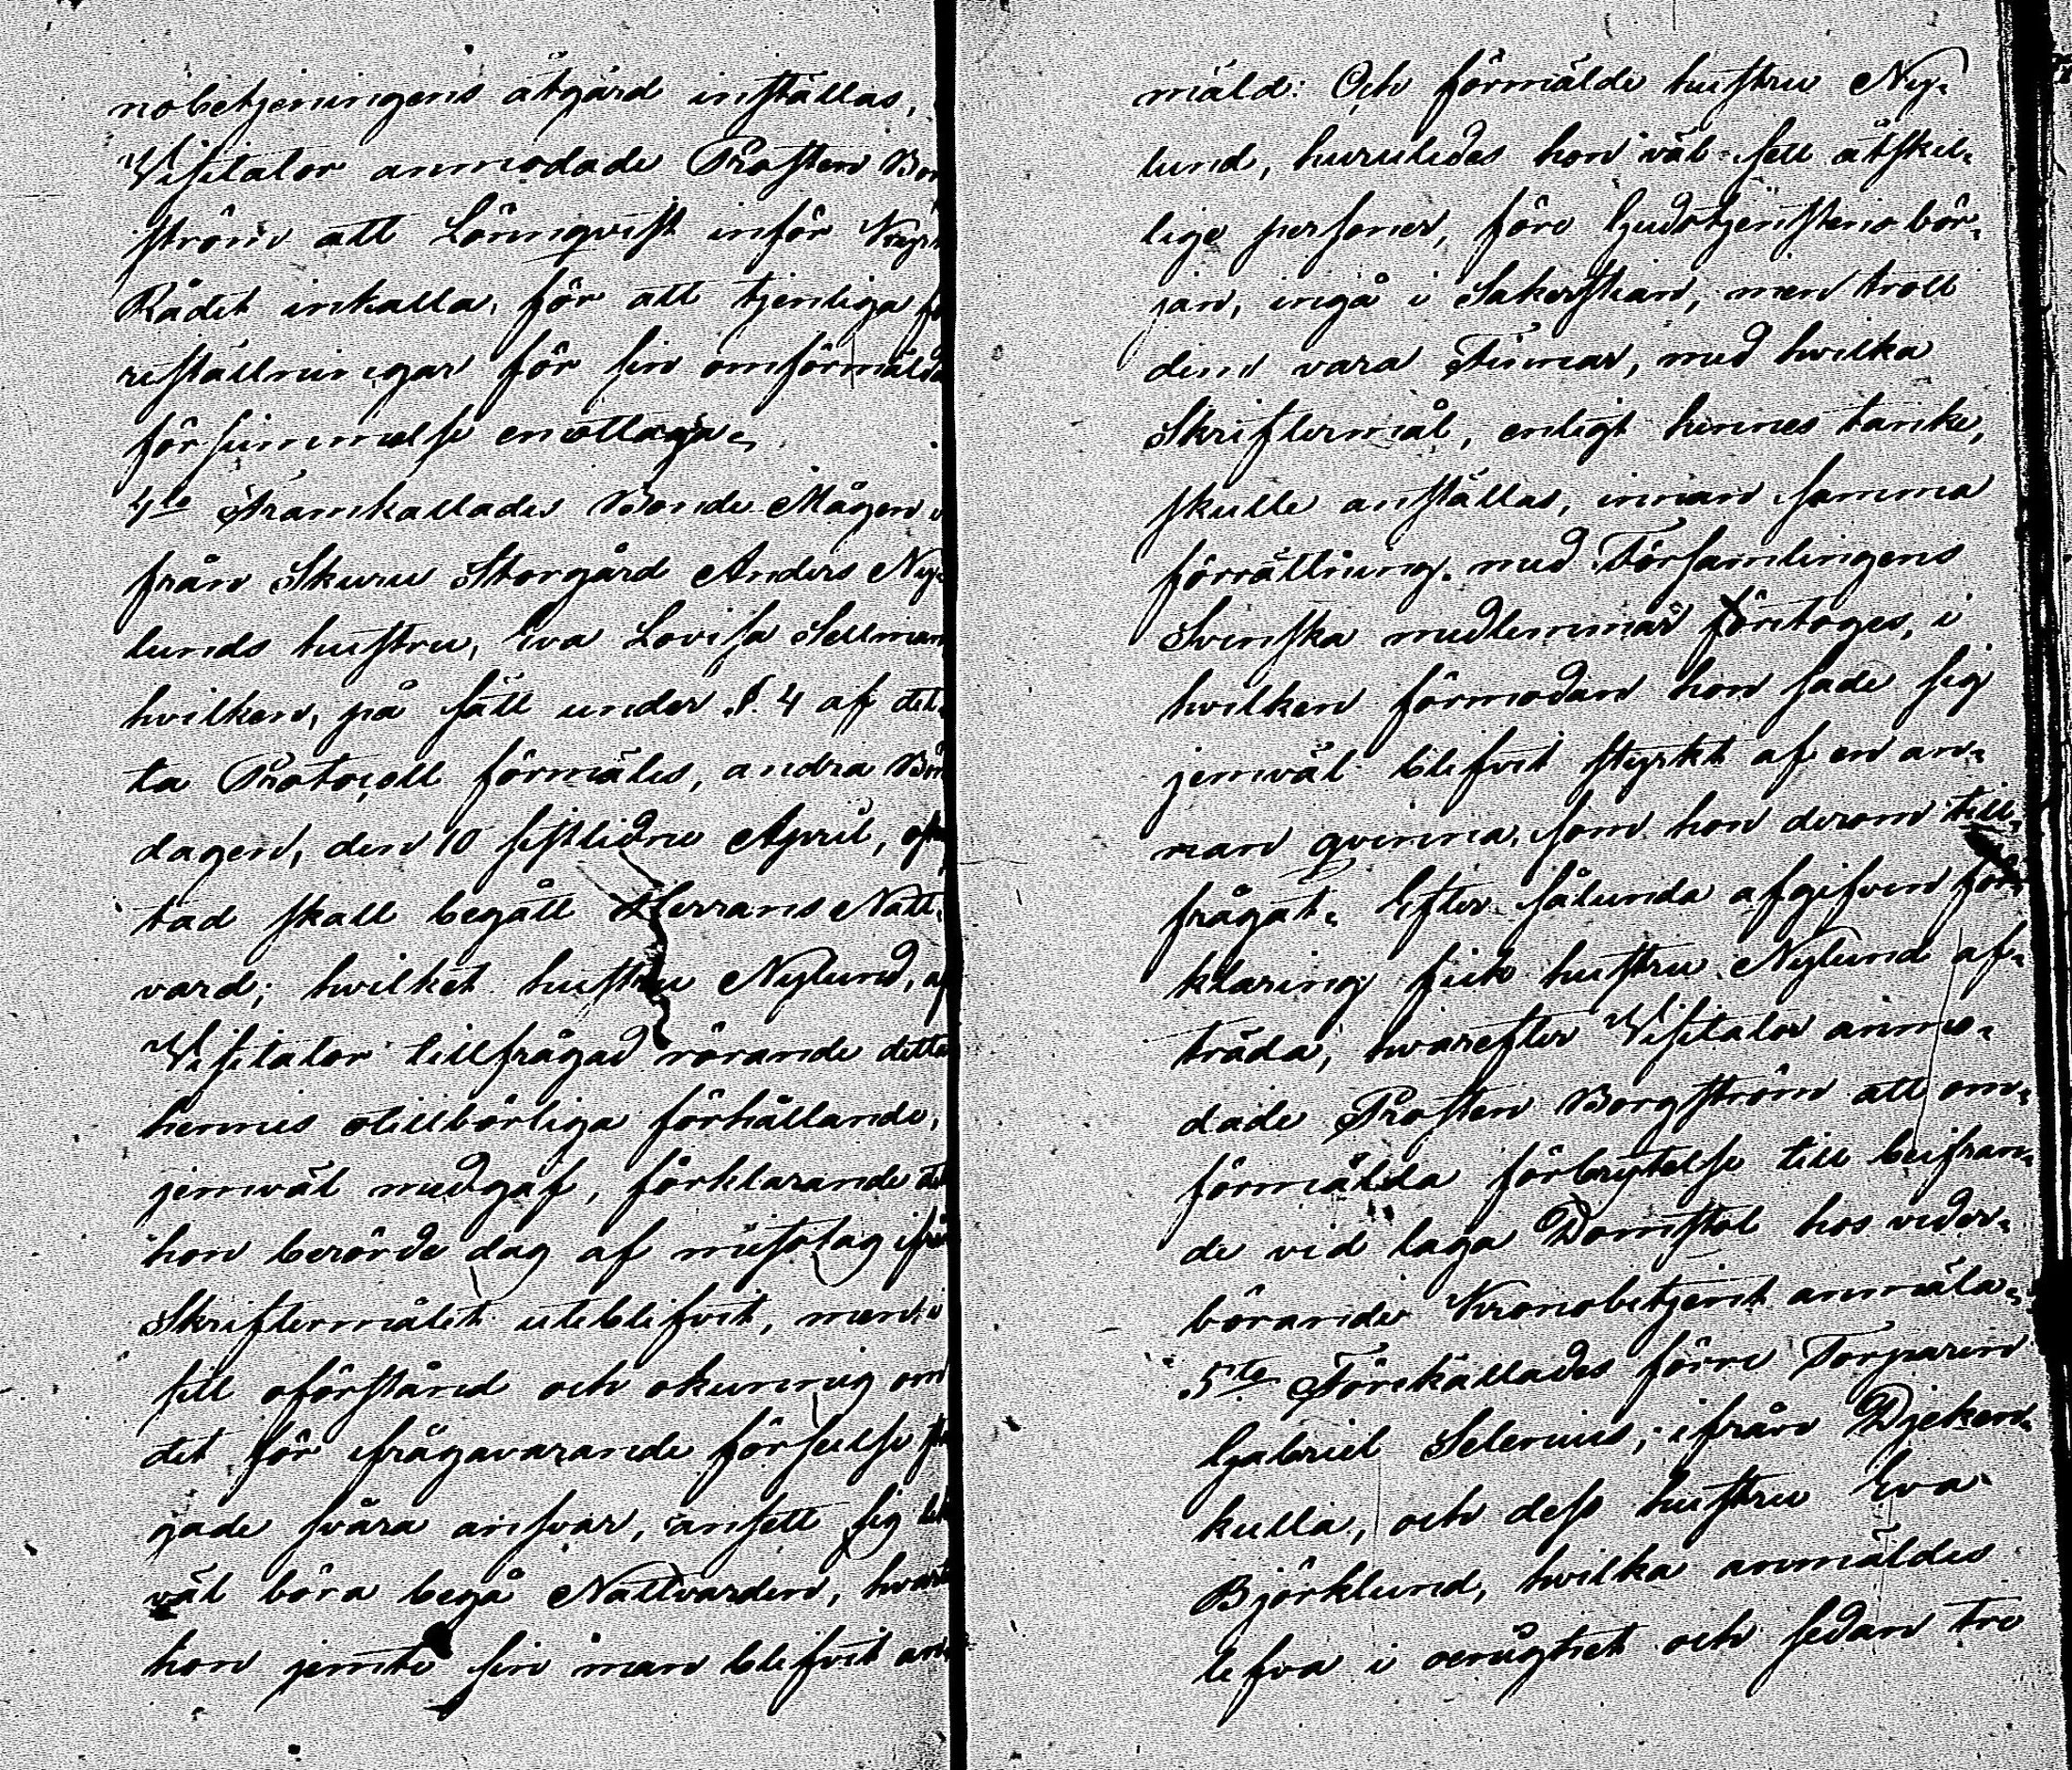 nobetjeningens åtgärd inställas,
Visitator anmodade Prosten Bor
ström att Lönnqvist inför Kyrk
Rådet inkalla, för att tjenliga fö
reställningar för sin omförmälda
försummelse emottaga.
4to Framkallades Bonde Mågen
från Skuru Storgård Anders Ny-
lunds hustru, Eva Lovisa Sellman
hvilken, på sätt under §. 4 af det-
ta Protocoll förmäles, andra Bön
dagen, den 10 sistlidne April,
tad skall begått Herrans Natt-
vard; hvilket hustru Nylund, af
Visitator tillfrågad rörande detta
hennes otillbörliga förhållande,
jemväl medgaf, förklarande att
hon berörde dag af misstag ifrån
Skriftermålet uteblifvit, men i
sitt oförstånd och okunnig om
det för ifrågavarande förseelse
gade svåra ansvar, ansett sig lik
väl böra begå Nattvarden, hvart
hon jemte sin man blifvit an-
mäld: Och förmälde hustru Ny-
lund, huruledes hon väl sett åtskil-
lige personer, före Gudstjenstens bör-
jan, ingå i Sakerstian, men trott
dem vara Finnar, med hvilka
Skriftermål, enligt hennes tanke,
skulle anställas, innan samma
förrättning med Församlingens
Svenska medlemmar företoges, i
hvilken förmodan hon sade sig
jemväl blifvit styrkt af en an-
nan qvinna, som hon derom till-
frågat. Efter sålunda afgifven för-
klaring fick hustru Nylund af-
träda, hvarefter Visitator anmo-
dade Prosten Borgström att om-
förmälda förbrytelse till beifran-
de vid laga Domstol hos veder-
börande Kronobetjent anmäla.
5te Förekallades förre Torparen
Gabriel Selenius, ifrån Djeken-
kulla, och dess hustru Eva
Björklund, hvilka anmäldes
lefva i oenighet och sedan tre